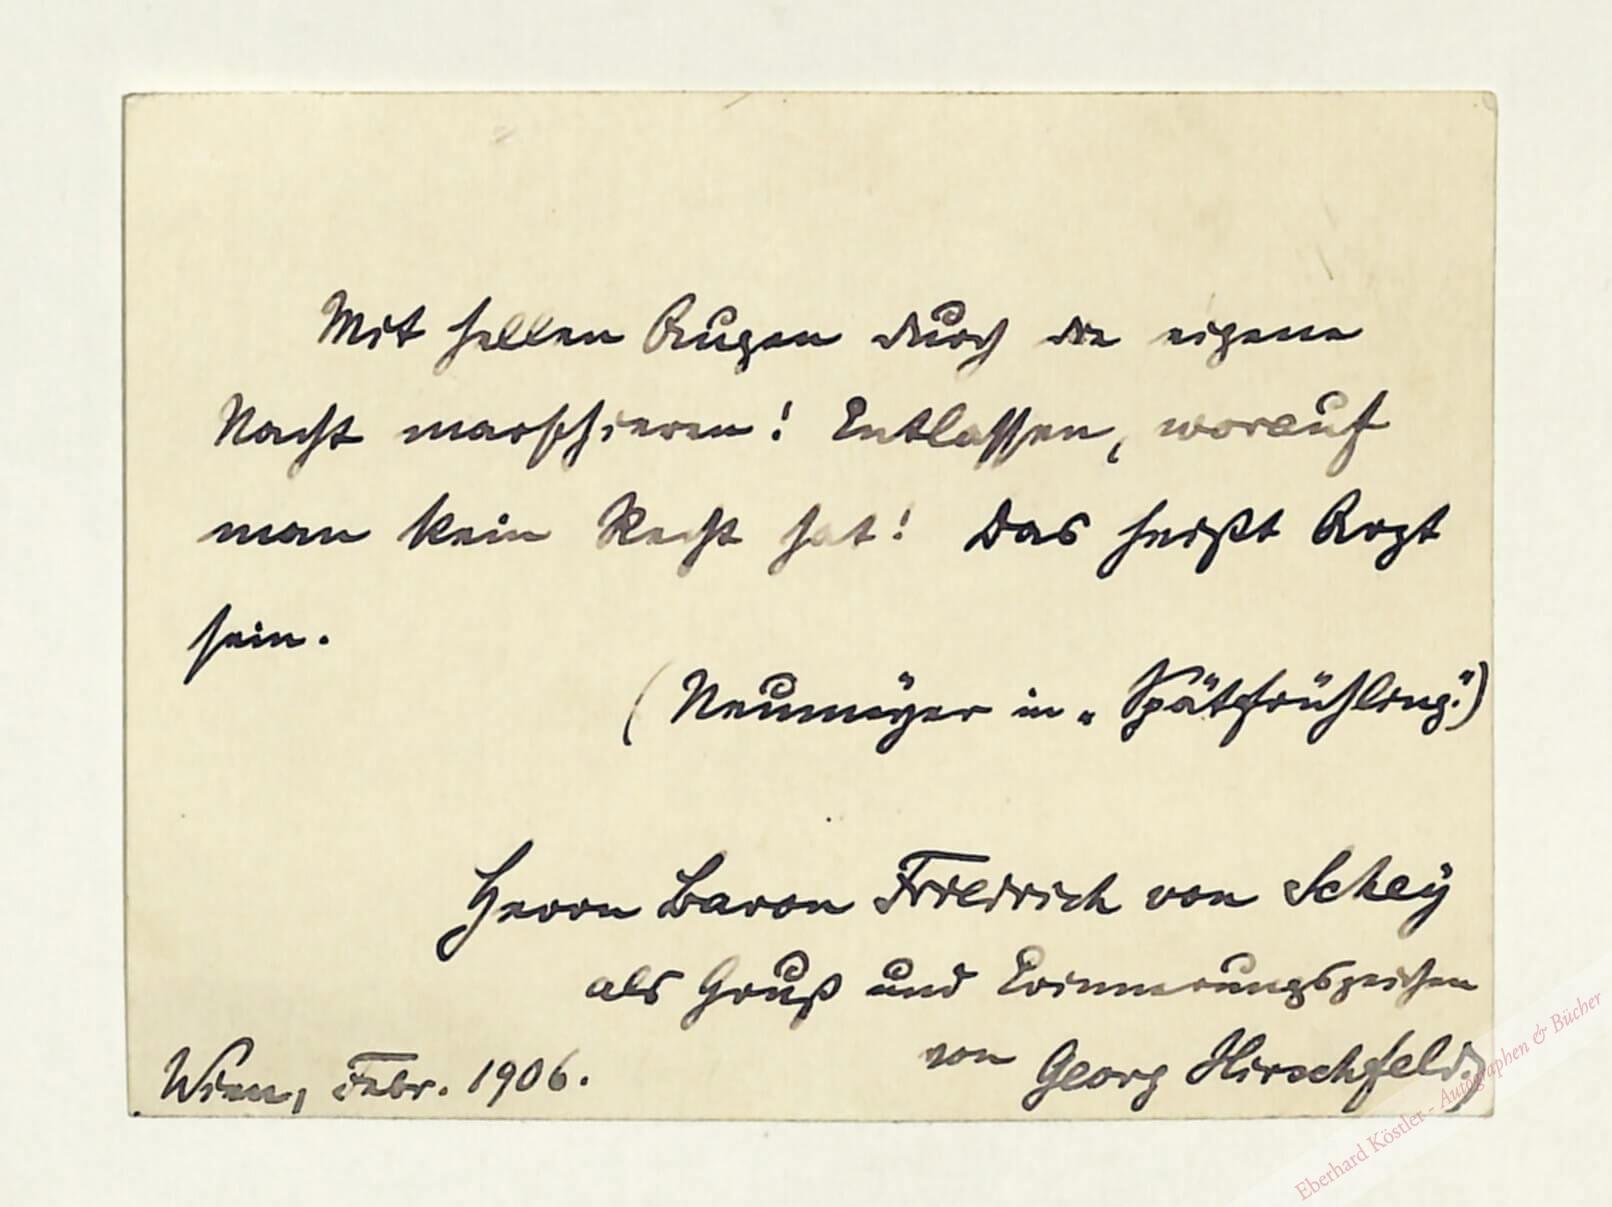 Mit hellen Augen durch die eigene
Nacht marschieren! Entlassen, worauf
man kein Recht hat! Das heißt Arzt
sein.
(Neumeyer in „Spätfrühling“.)
Herrn Baron Friedrich von Schey
als Gruß und Erinnerungszeichen
von Georg Hirschfeld.
Wien, Febr. 1906.
Eberhard Köstler - Autographen & Bücher